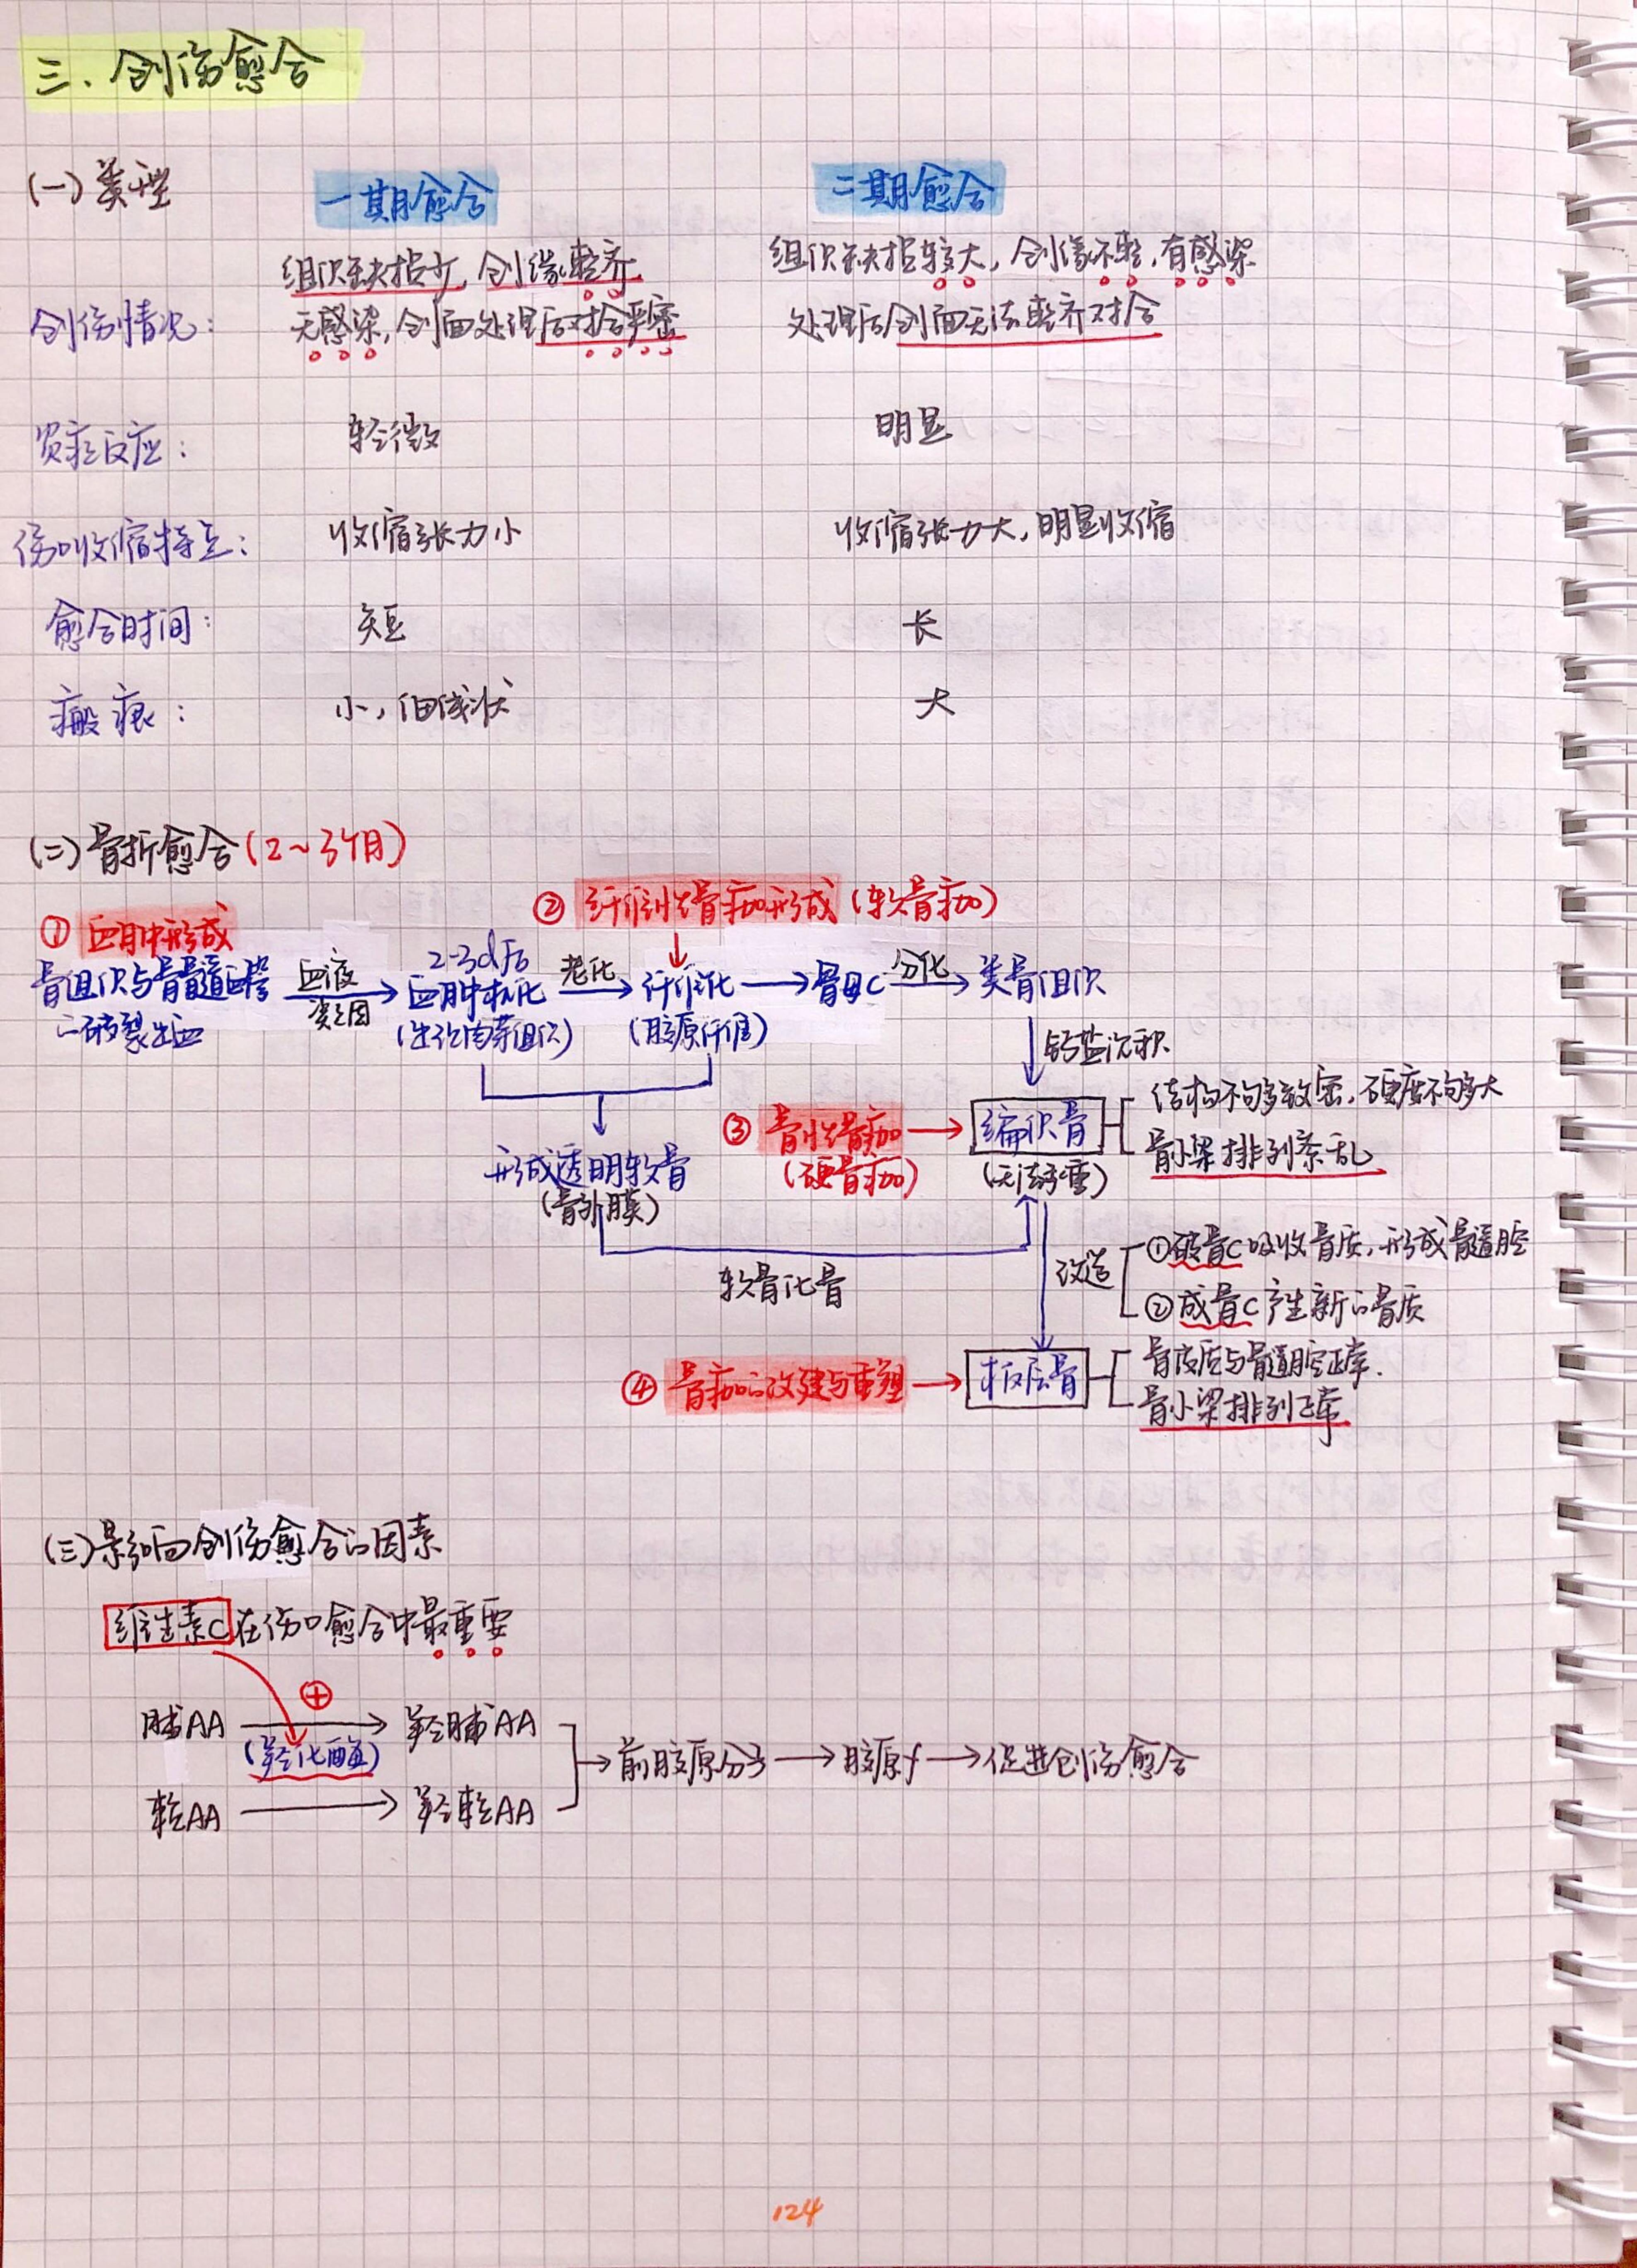 三、创伤愈合
(一)类型 一期愈合 二期愈合
创伤情况: 组织缺损少,创缘整齐 组织缺损较大,创缘不整,有感染
无感染,创面处理后对合严密 处理后创面无法整齐对合
炎症反应: 轻微 明显
伤口收缩特点: 收缩张力小 收缩张力大,明显收缩
愈合时间: 短 长
瘢痕: 小,细线状 大
(二)骨折愈合(2~3个月)
① 血肿形成
② 纤维性骨痂形成(软骨痂)
骨组织与骨髓血管 血液 2-3d后 老化 纤维化 骨母C 分化 类骨组织
破裂出血 血肿机化
(生长肉芽组织) (胶原纤维)
钙盐沉积
③ 骨性骨痂 编织骨 结构不够致密,硬度不够大
(硬骨痂) (无法承重) 骨小梁排列紊乱
形成透明软骨
(骨外膜)
软骨化骨
改造 ①破骨C吸收骨质,形成骨髓腔
②成骨C产生新的骨质
④ 骨痂的改建与重塑 板层骨 骨皮质与骨髓腔正常.
骨小梁排列正常
(三)影响创伤愈合的因素
维生素C在伤口愈合中最重要
脯AA + 羟脯AA
(羟化酶) 前胶原分子 胶原f 促进创伤愈合
赖AA 羟赖AA
124